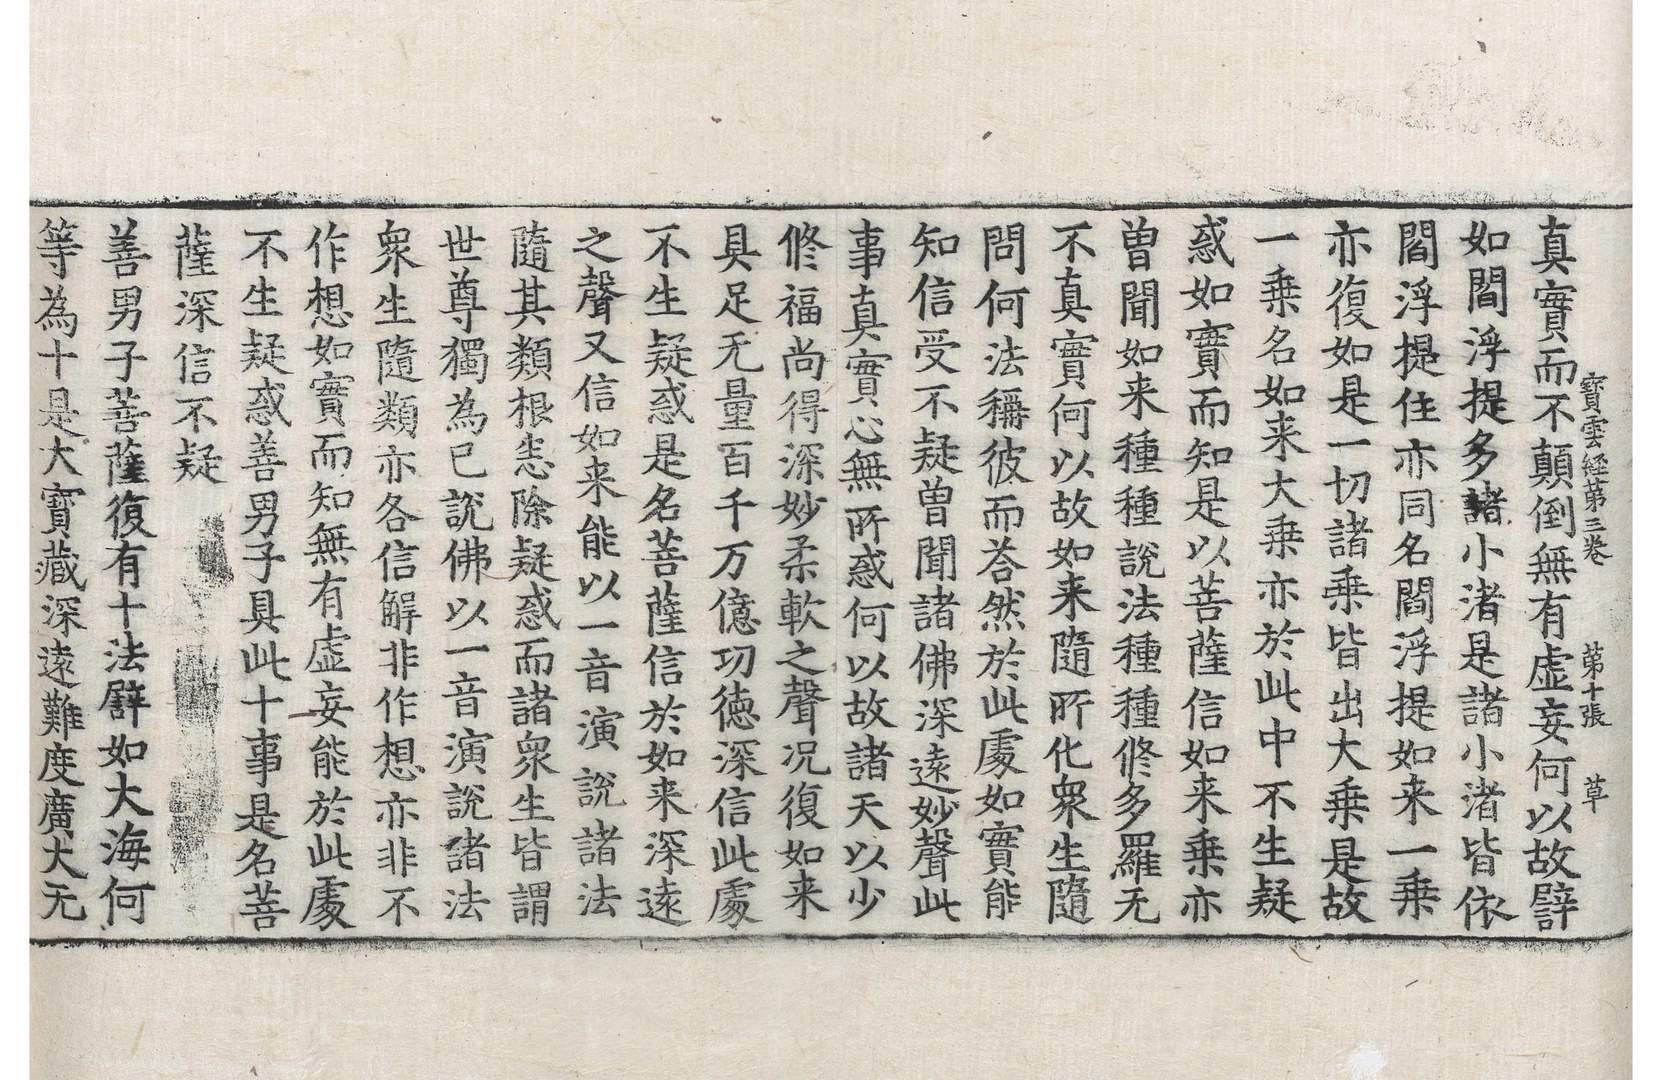 寶雲經苐三卷　苐十張　草
真實而不顛倒無有虚妄何以故譬
如閻浮提多諸小渚是諸小渚皆依
閻浮提住亦同名閻浮提如来一乗
亦復如是一切諸乗皆出大乗是故
一乗名如来大乗亦於此中不生疑
惑如實而知是以菩薩信如来乗亦
曽聞如来種種說法種種修多羅无
不真實何以故如来隨所化衆生隨
問何法稱彼而荅然於此處如實能
知信受不疑曽聞諸佛深遠妙聲此
事真實心無所惑何以故諸天以少
修福尚得深妙柔軟之聲况復如来
具足无量百千万億功徳深信此處
不生疑惑是名菩薩信於如来深遠
之聲又信如来能以一音演說諸法
隨其類根悉除疑惑而諸衆生皆謂
世尊獨為已說佛以一音演說諸法
衆生隨類亦各信解非作想亦非不
作想如實而知無有虚妄能於此處
不生疑惑善男子具此十事是名菩
薩深信不疑
善男子菩薩復有十法譬如大海何
等為十是大寶藏深遠難度廣大无